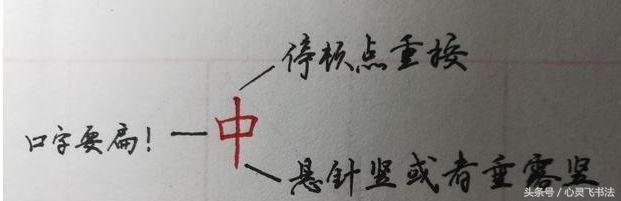 停顿点重按
口字要扁！
中
悬针竖或者垂露竖
头条号／心灵飞书法